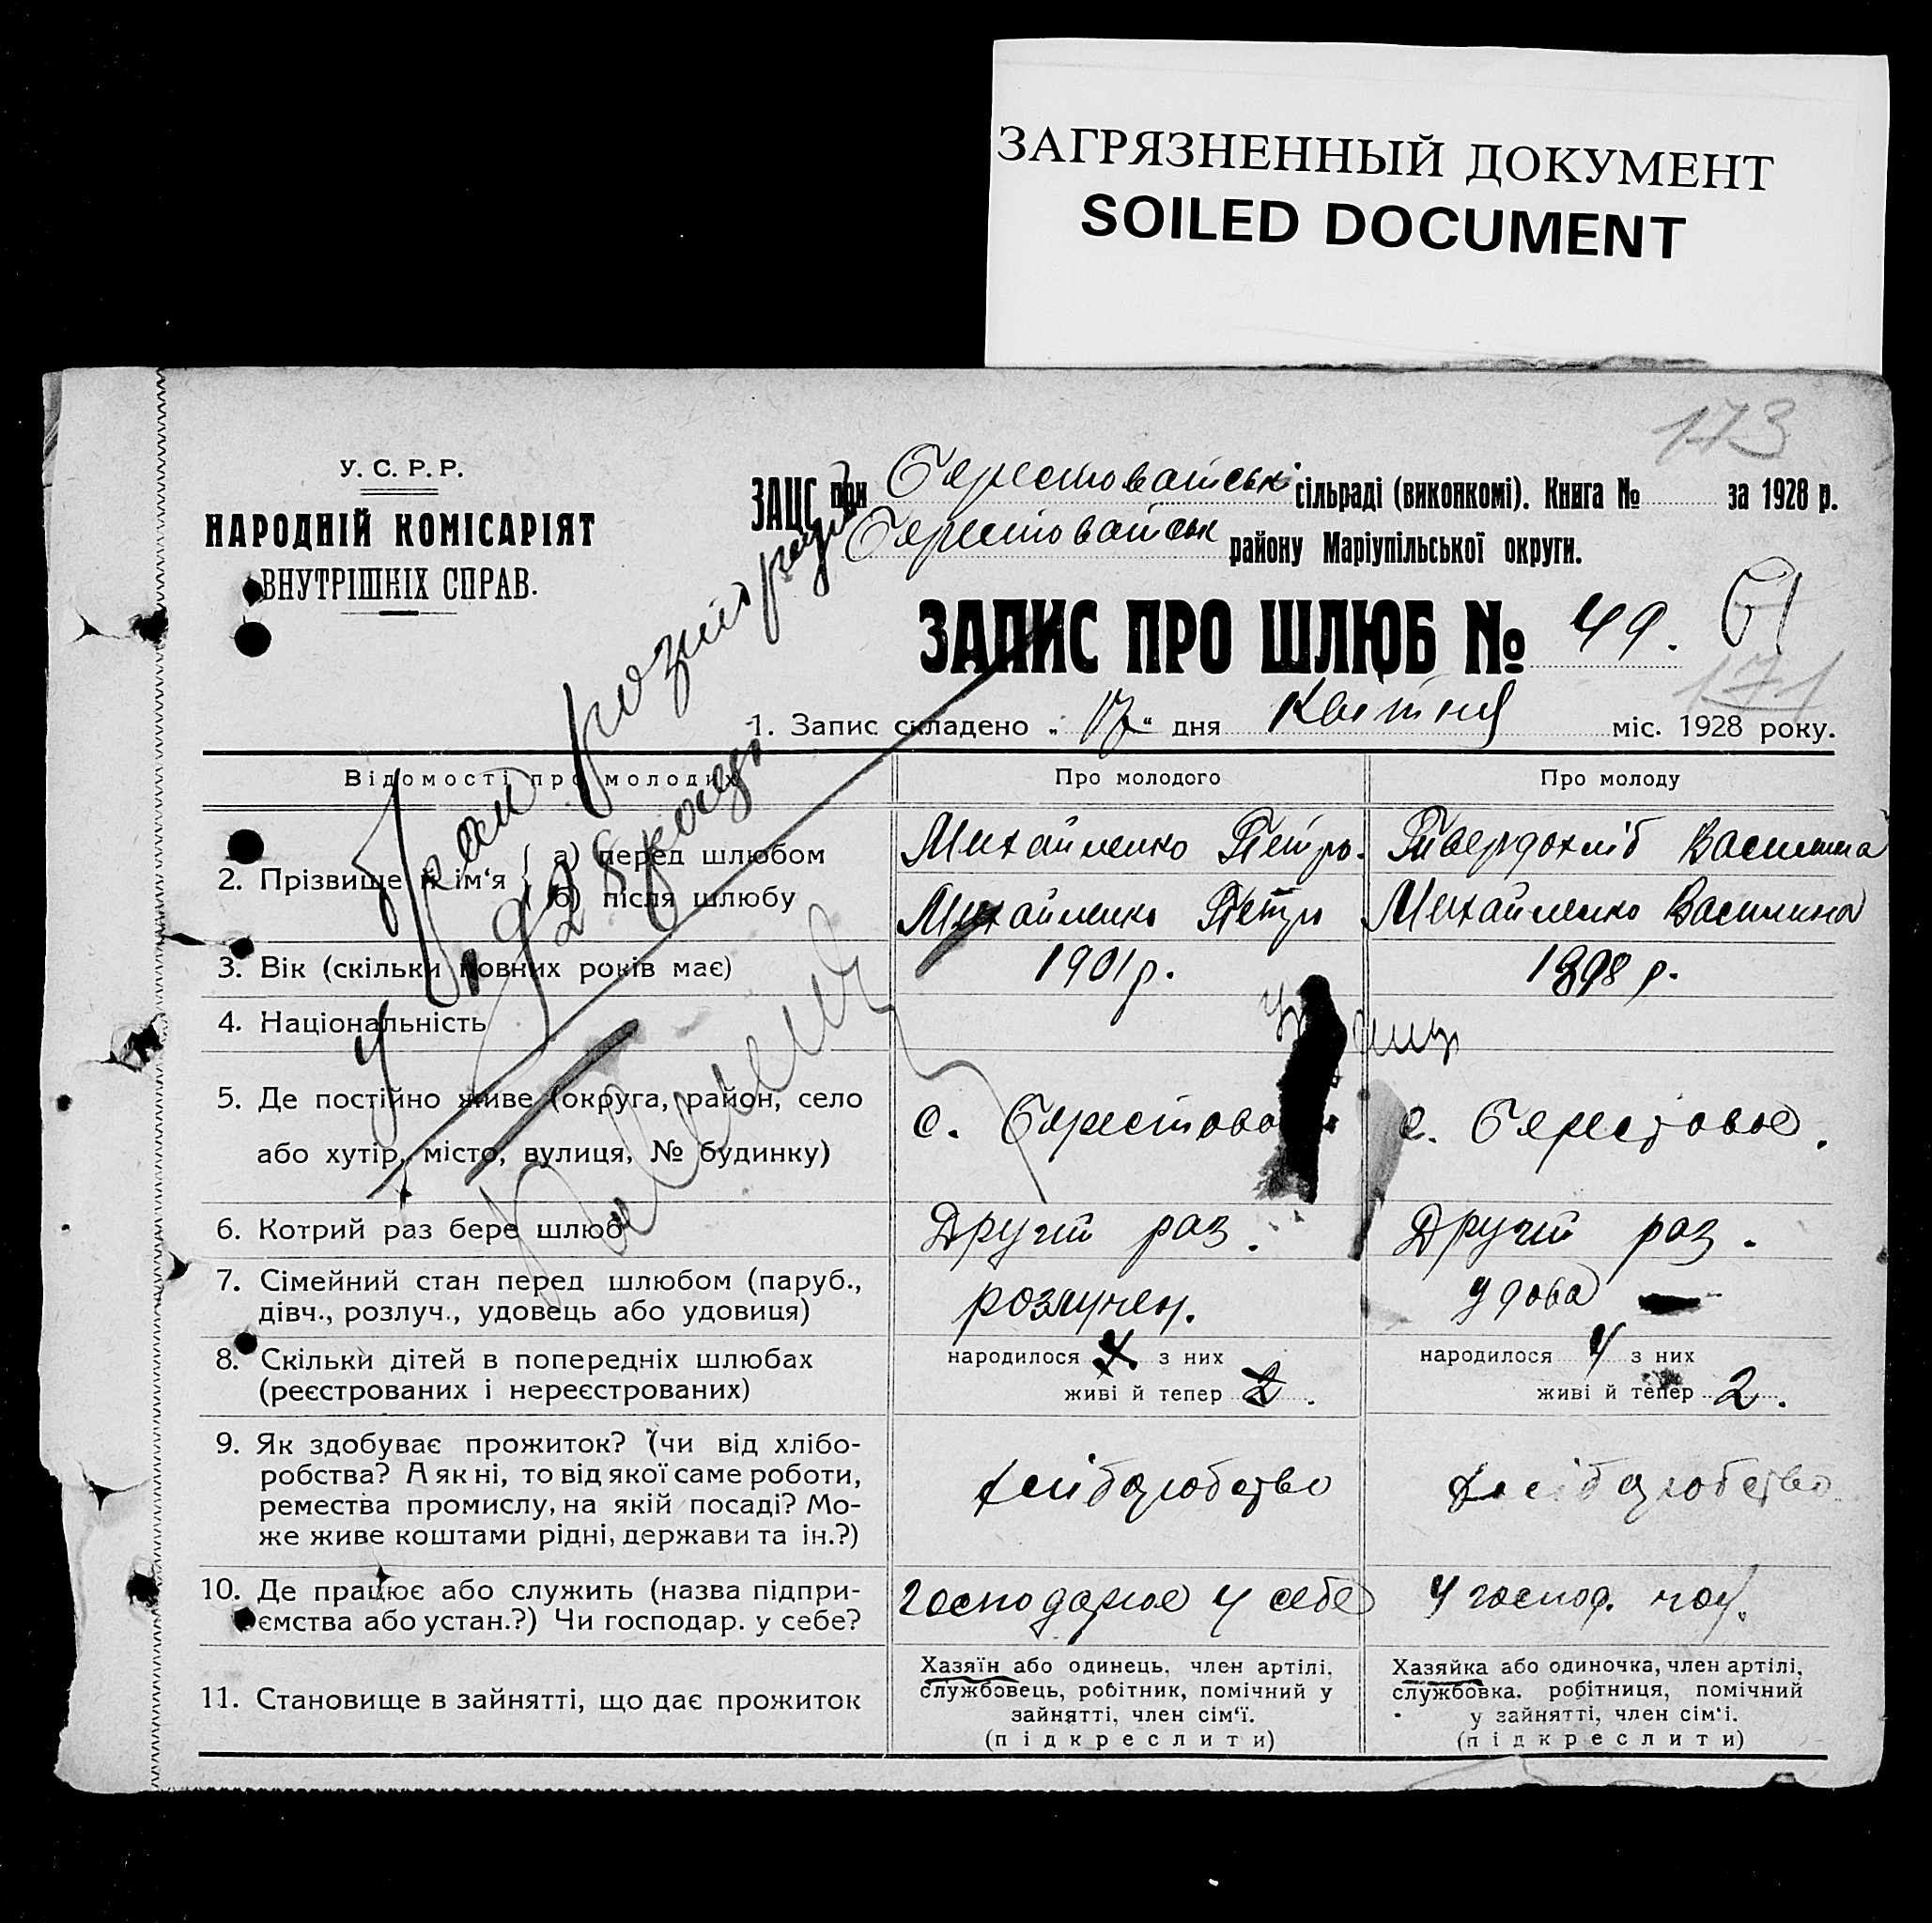 ЗАГРЯЗНЕННЫЙ ДОКУМЕНТ
SOILED DOCUMENT
173
У. С. Р. Р.
НАРОДНІЙ КОМІСАРІЯТ
ВНУТРІШНІХ СПРАВ.
ЗАЦС при Берестоватськ сільраді (виконкомі). Книга № за 1928 р.
Берестоватськ району Маріупільської округи.
ЗАПИС ПРО ШЛЮБ № 49.
61
171
1. Запис складено „ 17 “ дня Квітня міс. 1928 року.
Відомості про молодих
Про молодого
Про молоду
2. Прізвище й ім‘я { а) перед шлюбом
Михайленко Петро.
Твердохліб Василина
б) після шлюбу
Михайленко Петро
Михайленко Василина
3. Вік (скільки повних років має)
1901 р.
1898 р.
4. Національність
5. Де постійно живе (округа, район, село
або хутір, місто, вулиця, № будинку)
с. Берестово
с. Берестовое.
6. Котрий раз бере шлюб
Другий раз.
Другий раз.
7. Сімейний стан перед шлюбом (паруб.,
дівч., розлуч., удовець або удовиця)
розлучен.
удова
8. Скільки дітей в попередніх шлюбах
(реєстрованих і нереєстрованих)
народилося з них
живі й тепер 2.
народилося 4 з них
живі й тепер 2.
9. Як здобуває прожиток? (чи від хлібо-
робства? А як ні, то від якої саме роботи,
ремества промислу, на якій посаді? Мо-
же живе коштами рідні, держави та ін.?)
хліборобство
хліборобство
10. Де працює або служить (назва підпри-
ємства або устан.?) Чи господар. у себе?
господарює у себе
у господ. чол.
11. Становище в зайнятті, що дає прожиток
Хазяїн або одинець, член артілі,
службовець, робітник, помічний у
зайнятті, член сім‘ї.
(підкреслити)
Хазяйка або одиночка, член артілі,
службовка. робітниця, помічний
у зайнятті, член сім‘і.
(підкреслити)
1928 року